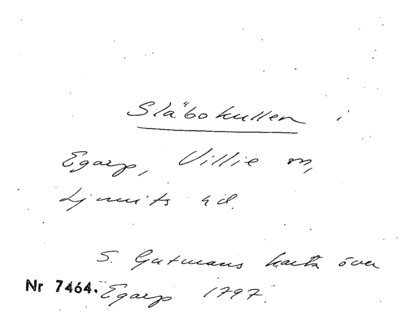 Släbokullen i
Egarp, Villie sn,
Ljunits hd.
S. Gutmans karta över
Nr 7464. Egarp 1797.